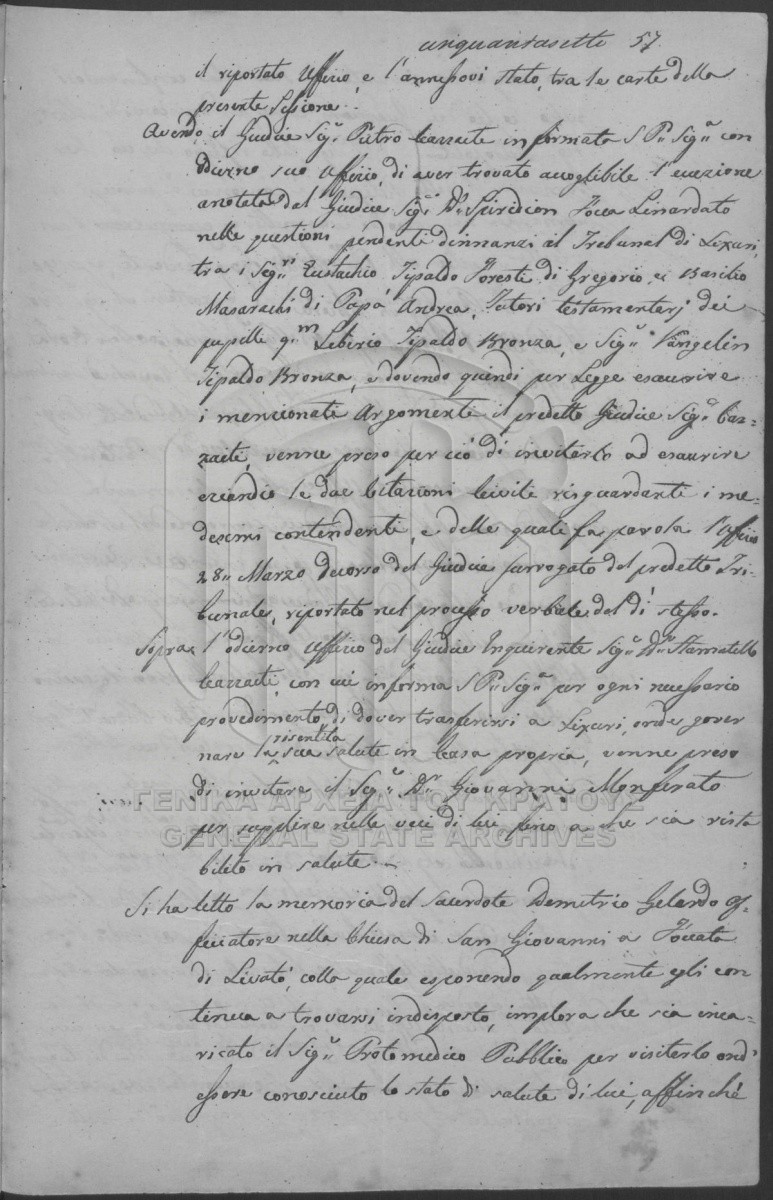 cinquantasette 57.
il riportato Uffizio, e l'annessovi stato, tra le carte della
presente Sessione.
Avendo il Giudice Sig.r Pietro Cazzaiti informata S. P.a Sig.a con
odierno suo Uffizio, di aver trovato accoglibile l'eccezione
anotata dal Giudice Sig.r D.r Spiridion Focca Linardato
nelle questioni pendenti dinnanzi al Tribunal di Lixuri,
tra i Sig.ri Eustachio Tipaldo Foresti di Gregorio, et Basilio
Masarachi di Papà Andrea, Tutori testamentarj dei
pupilli q.m Liberio Tipaldo Bronza, e Sig.r Vangelin
Tipaldo Bronza, e dovendo quindi per Legge esaurire
i mencionati Argomenti il predetto Giudice Sig.r Caz=
zaiti, venne preso per ciò di invitarlo ad esaurire
eziandio le due Citazioni Civili risguardanti i me=
desimi contendenti, e delle quali fa parola l'Uffizio
28 Marzo decorso del Giudice surrogato del predetto Tri=
bunale, riportato nel processo verbale del dì stesso.
Sopra l'odierno Uffizio del Giudice Inquirente Sig.r D.r Stamatello
Cazzaiti, con cui informa S. P.a Sig.a per ogni necessario
provedimento, di dover trasferirsi a Lixuri, onde gover
nare la risentita sua salute in Casa propria, venne preso
di invitare il Sig.r D.r Giovanni Monferato
per supplire nelle veci di lui fino a che sia rista
bilito in salute.
ΓΕΝΙΚΑ ΑΡΧΕΙΑ ΤΟΥ ΚΡΑΤΟΥΣ
GENERAL STATE ARCHIVES
Si ha letto la memoria del sacerdote Demetrio Gelardo of=
ficiatore nella Chiesa di San Giovanni a Focata
di Livatò, colla quale esponendo qualmente egli con
tinua a trovarsi indisposto, implora che sia inca=
ricato il Sig.r Protomedico Pubblico per visitarlo ond'
essere conosciuto lo stato di salute di lui, affinchè